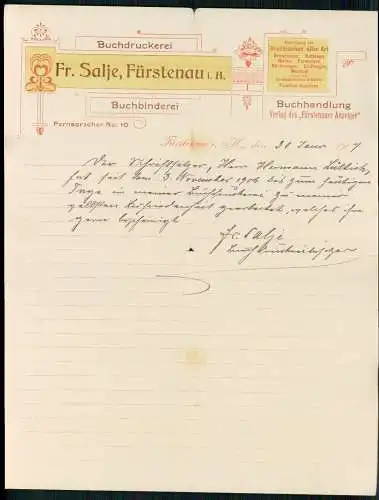 Buchdruckerei
Fr. Salje, Fürstenau i. H.
Buchbinderei
Fernsprecher No. 10
Anfertigung von
Drucksachen aller Art
Buchhandlung
Verlag des „Fürstenauer Anzeiger“
Fürstenau i. H., den 31 Janr 1907
Der Schriftsetzer, Herr Hermann
hat seit dem 3. November 1906 bis zum heutigen
Tage in meiner Buchdruckerei zu meiner
vollsten Zufriedenheit gearbeitet, welches ihm
gern bescheinigt
Fr. Salje
Buchdruckereibesitzer